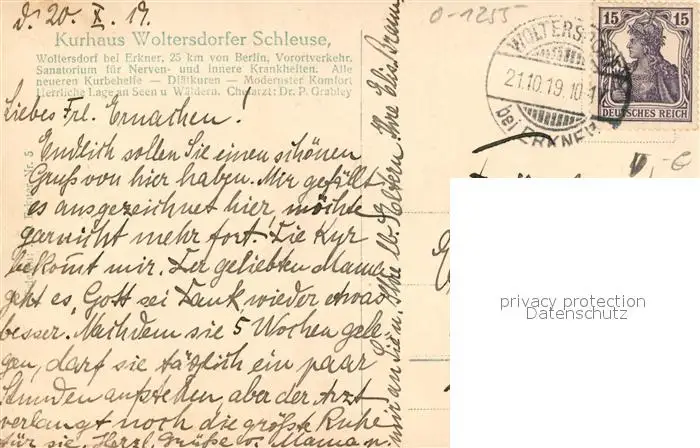 d. 20. X. 19.
Kurhaus Woltersdorfer Schleuse,
Woltersdorf bei Erkner, 25 km von Berlin, Vorortverkehr.
Sanatorium für Nerven- und innere Krankheiten. Alle
neueren Kurbehelfe — Diätkuren — Modernster Komfort
Herrliche Lage an Seen u. Wäldern. Chefarzt: Dr. P. Grabley
Liebes Frl. Ernachen!
Endlich sollen Sie einen schönen
Gruß von hier haben. Mir gefällt
es ausgezeichnet hier, möchte
garnicht mehr fort. Die Kur
bekomt mir. Der geliebten Mama
geht es, Gott sei Dank wieder etwas
besser. Nachdem sie 5 Wochen gele-
gen, darf sie täglich ein paar
Stunden aufstehen, aber der Arzt
verlangt noch die größte Ruhe
für sie. Herzl. Grüße v. Mama u.
mir an Sie u. Ihre lb. Eltern Ihre Elis.
0-1255
WOLTERSDORF
21.10.19.10-1
bei ERKNER
15 15
DEUTSCHES REICH
Nr. 5
privacy protection
Datenschutz